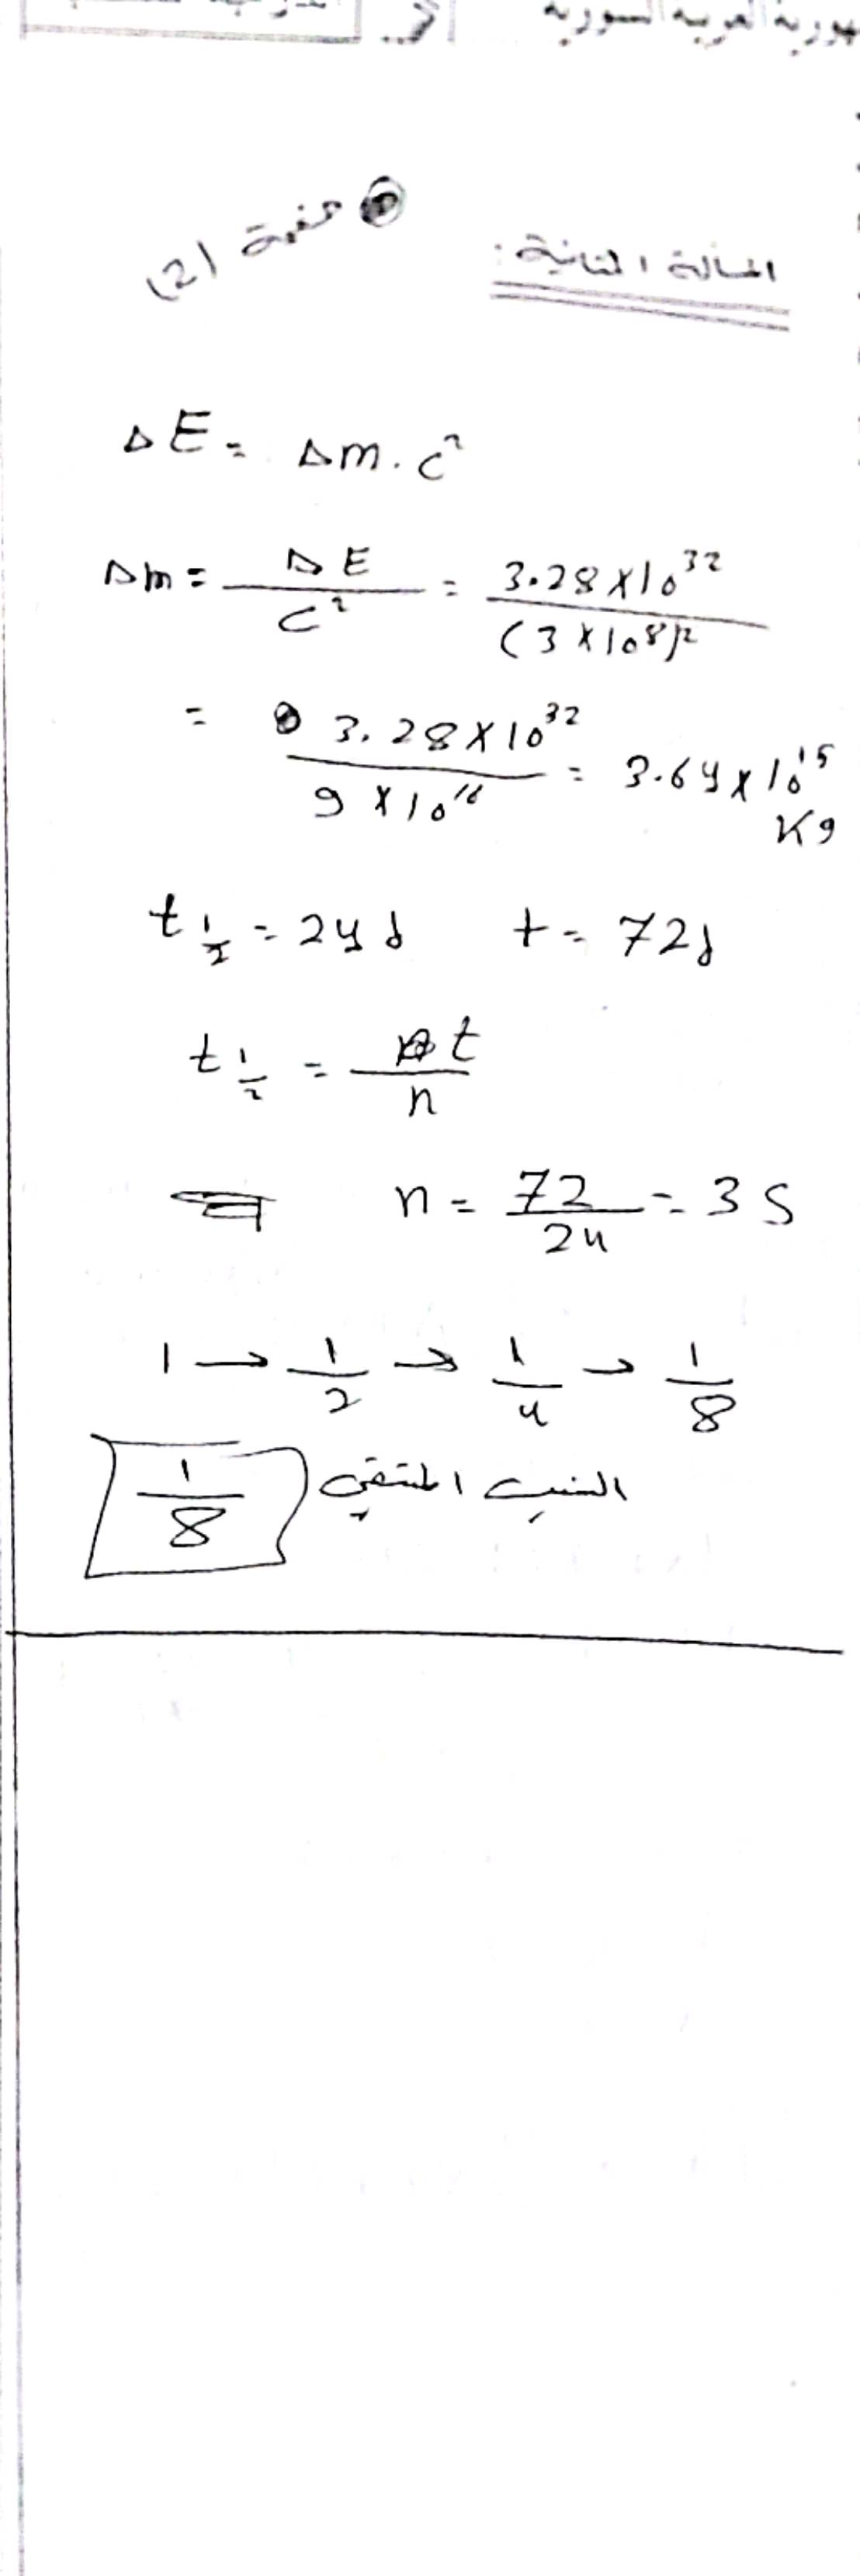 العربية السورية
المسألة الثانية:
صفحة (2)
ΔE = Δm . c²
Δm = ΔE / c² = 3.28 × 10³² / (3 × 10⁸)²
= 3.28 × 10³² / 9 × 10¹⁶ = 3.64 × 10¹⁵ Kg
t ½ = 24 d t = 72 d
t ½ = t / n
n = 72 / 24 = 3 S
1 → 1/2 → 1/4 → 1/8
النسبة المتبقية 1/8